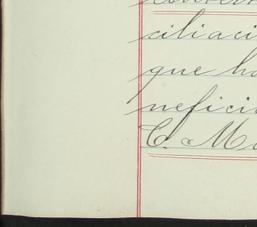 ciliaci
que ha
nefici
C. Mu